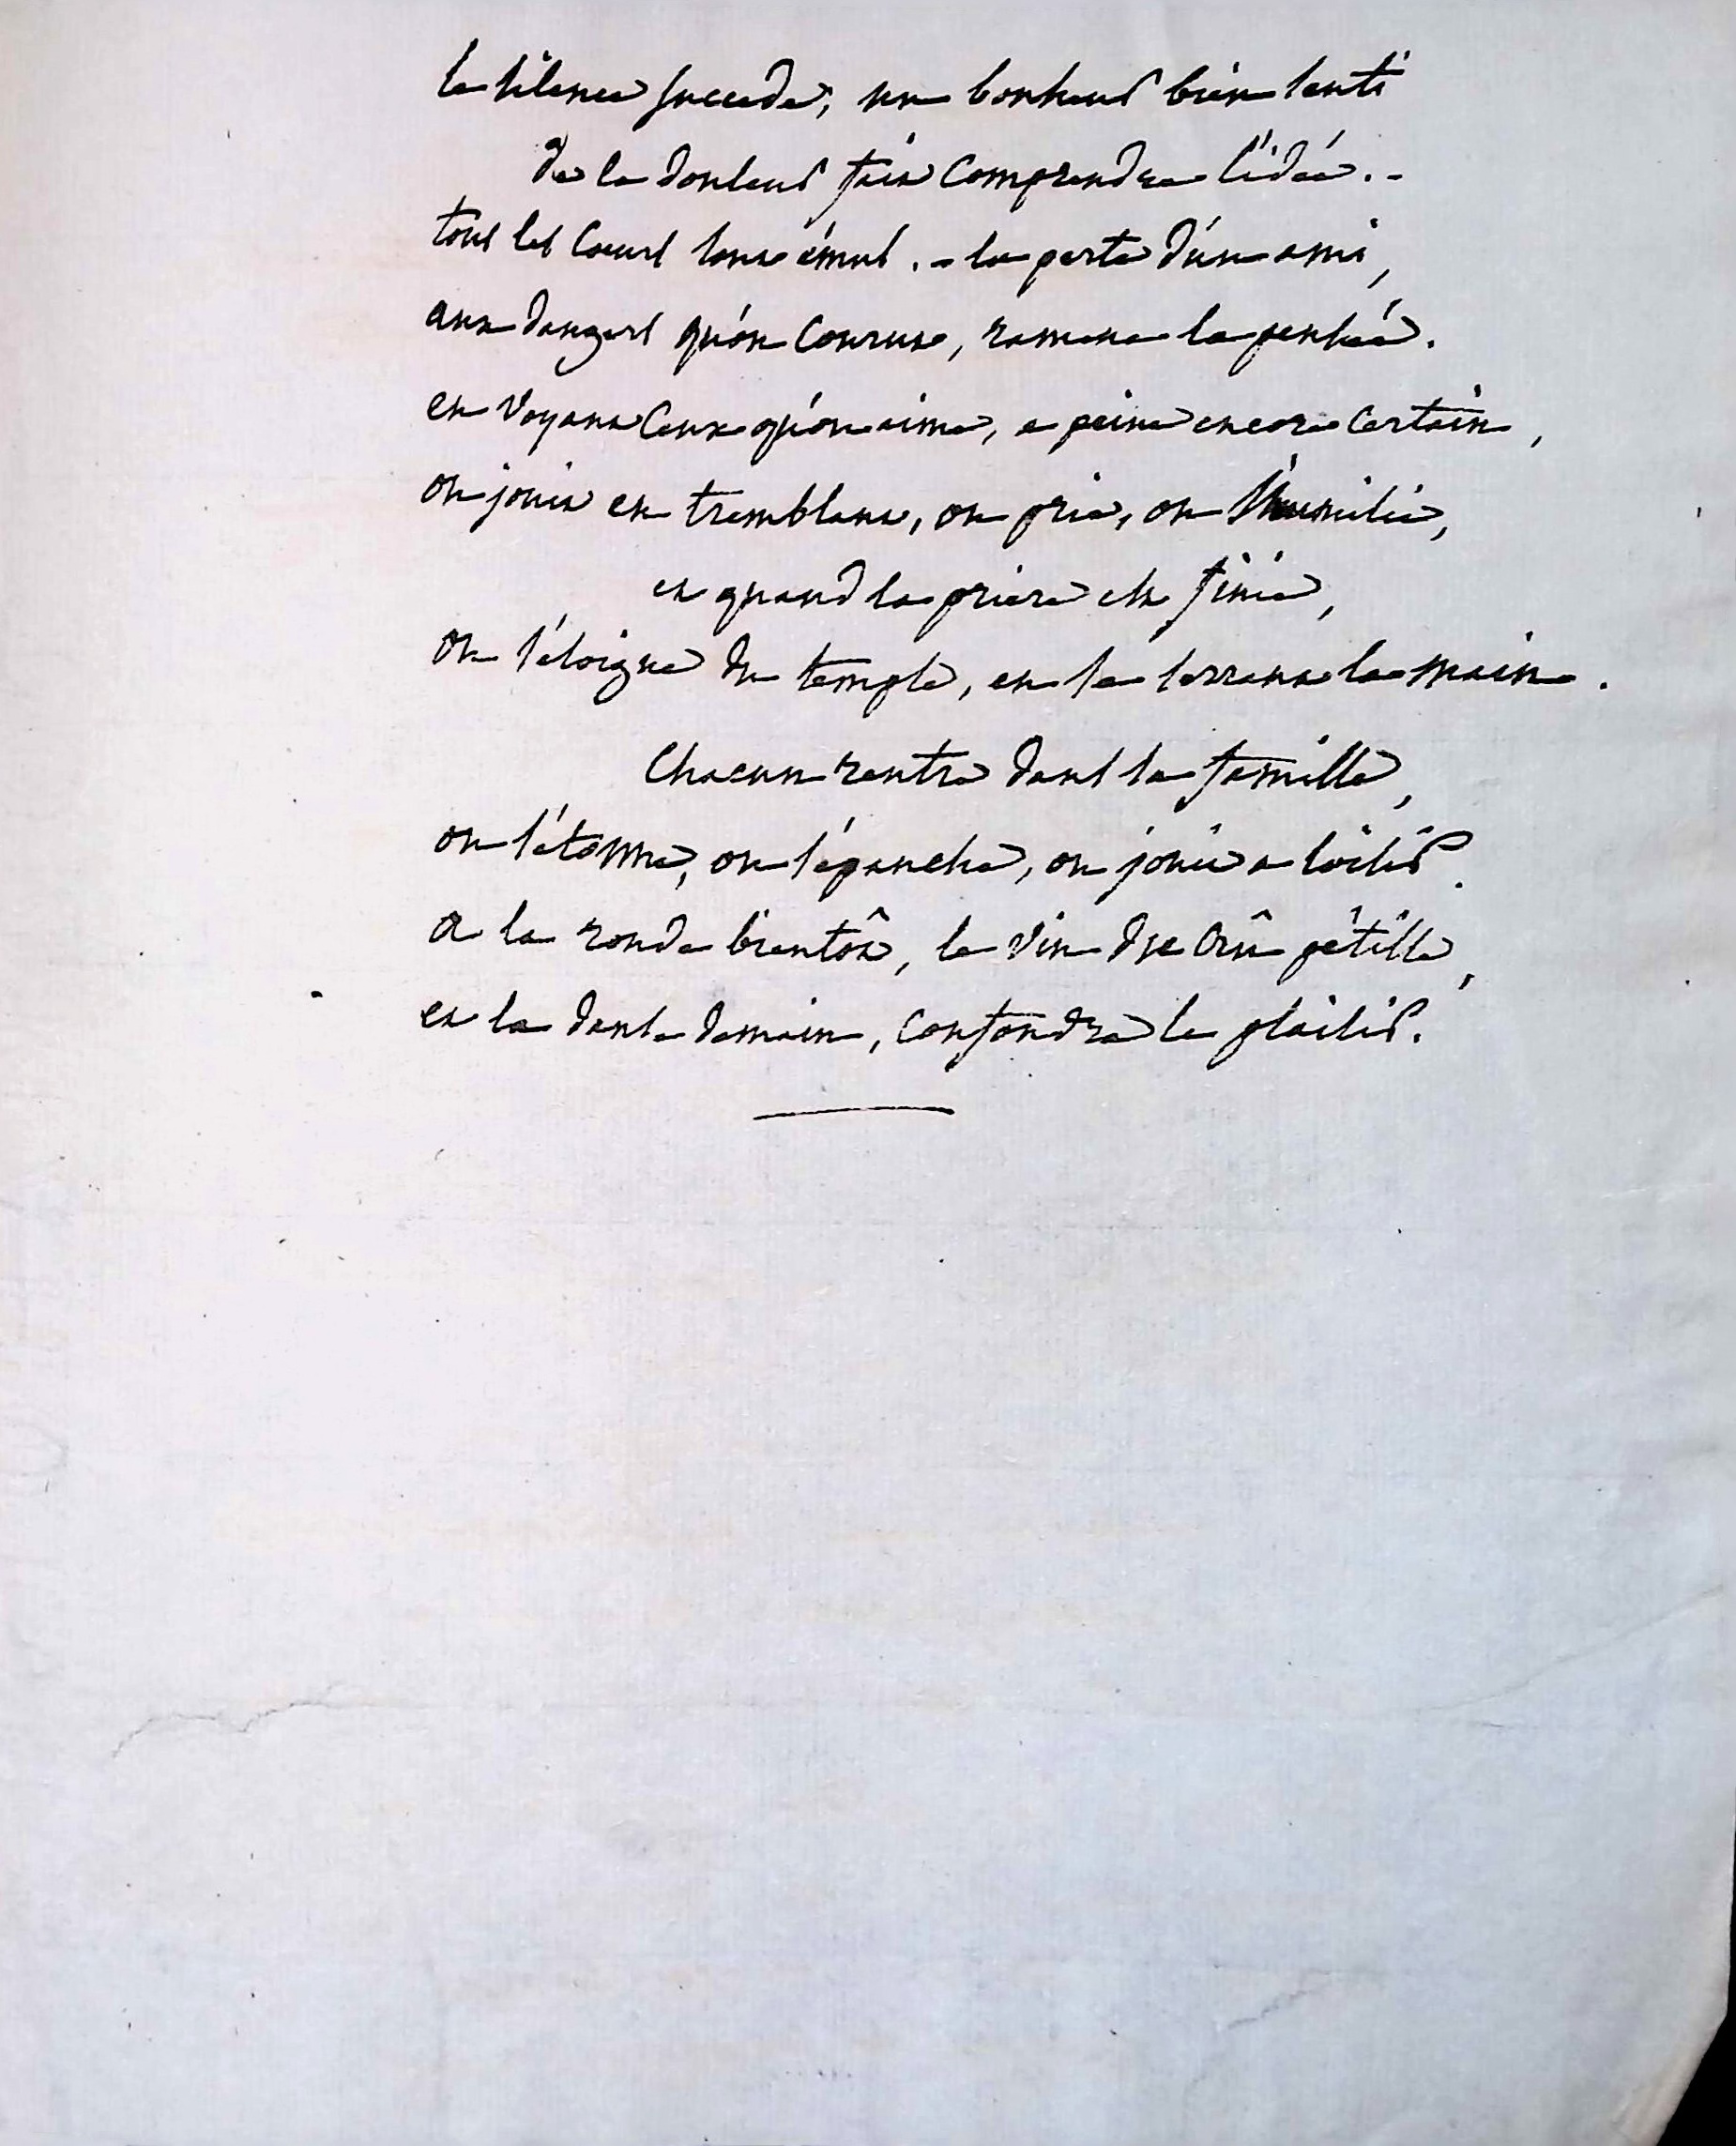 le silence succede, un bonheur bien senti
de la douleur fait comprendre l'idée. -
tous les cœurs sont émus . - la perte d'un ami,
aux dangers qu'on courut, ramene la pensée.
en voyant ceux qu'on aime, a peine encore certain,
on jouit en tremblant, on prie, on s'humilie,
et quand la priere est finie,
on s'éloigne du temple, en se serrant la main.
Chacun rentre dans sa famille,
on s'étonne, on s'épanche, on jouit a loisir.
a la ronde bientôt, le vin du crû pétille,
et la danse demain, confondra le plaisir.